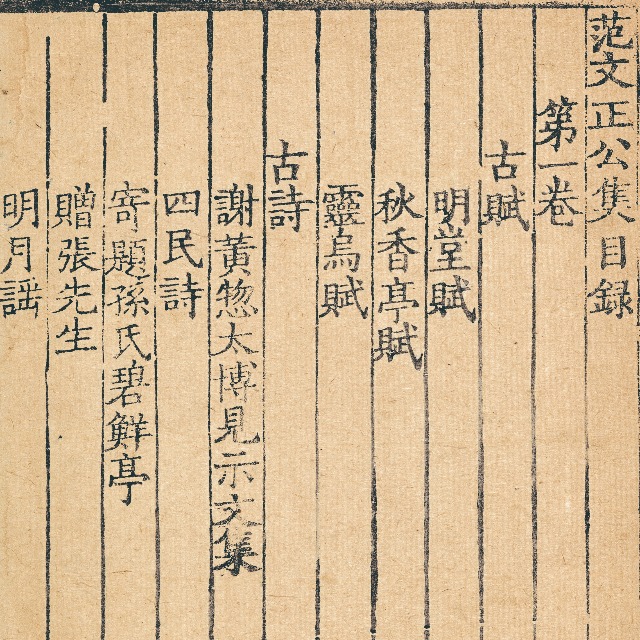 范文正公集目録
第一卷
古賦
明堂賦
秋香亭賦
靈烏賦
古詩
謝黃惣太博見示文集
四民詩
寄題孫氏碧鮮亭
贈張先生
明月謡